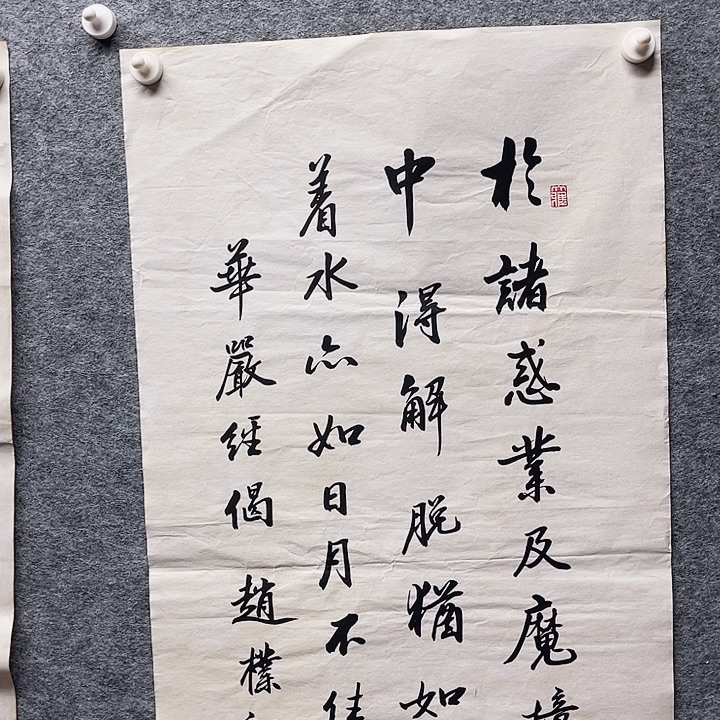 於諸惑業及魔境
中得解脱猶如
着水亦如日月不住
華嚴經偈 趙樸